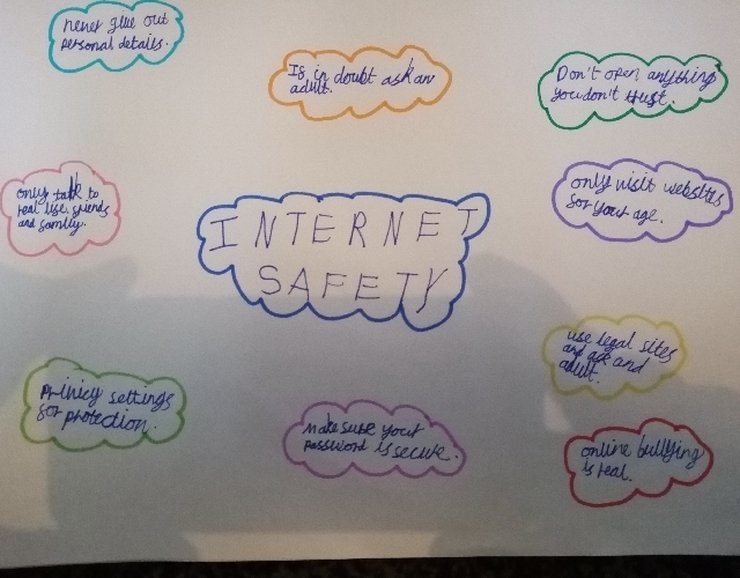 never give out
personal details.
Is in doubt ask an
adult.
Don't open anything
you don't trust.
only talk to
real lise, sriends
and samily.
INTERNET
SAFETY
only visit websites
sor your age.
use legal sites
and ask and
adult.
privicy settings
sor protection.
make sure your
password is secure.
online bullying
is real.